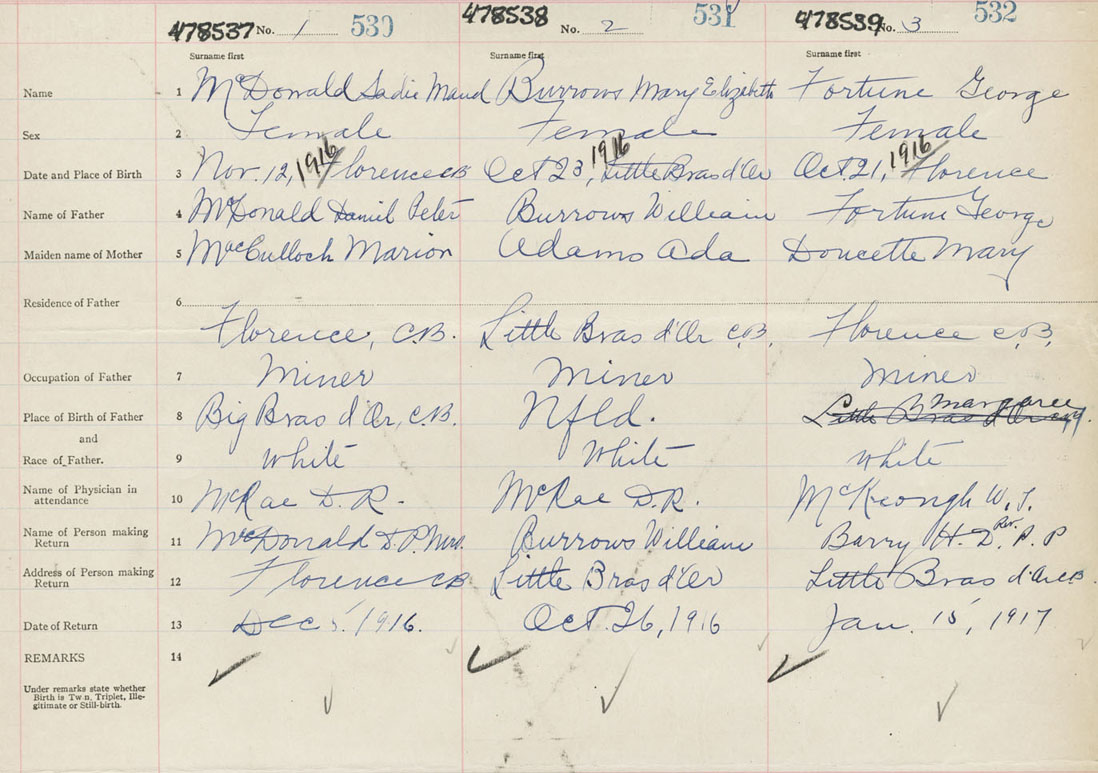 478537 No. 1 530 478538 No. 2 531 478539 No. 3 532
Surname first Surname first Surname first
Name 1 McDonald Sadie Maud Burrows Mary Elizabeth Fortune George
Sex 2 Female Female Female
Date and Place of Birth 3 Nov. 12, 1916 Florence CB Oct 23, 1916 Little Bras d'Or Oct 21, 1916 Florence
Name of Father 4 McDonald Daniel Peter Burrows William Fortune George
Maiden name of Mother 5 MacCulloch Marion Adams Ada Doucette Mary
Residence of Father 6
Florence, C.B. Little Bras d'Or C.B. Florence C.B.
Occupation of Father 7 Miner Miner Miner
Place of Birth of Father 8 Big Bras d'Or, C.B. Nfld. Little Bras d'Or Margaree
and
Race of Father. 9 White White White
Name of Physician in
attendance 10 McRae D. R. McRae D.R. McKeough W. J.
Name of Person making
Return 11 McDonald D.P. Mrs. Burrows William Barry H. D. Rev. P. P
Address of Person making
Return 12 Florence CB Little Bras d'Or Little Bras d'Or C.B.
Date of Return 13 Dec 5, 1916. Oct. 26, 1916 Jan. 15, 1917
REMARKS 14
Under remarks state whether
Birth is Twin, Triplet, Ille-
gitimate or Still-birth.